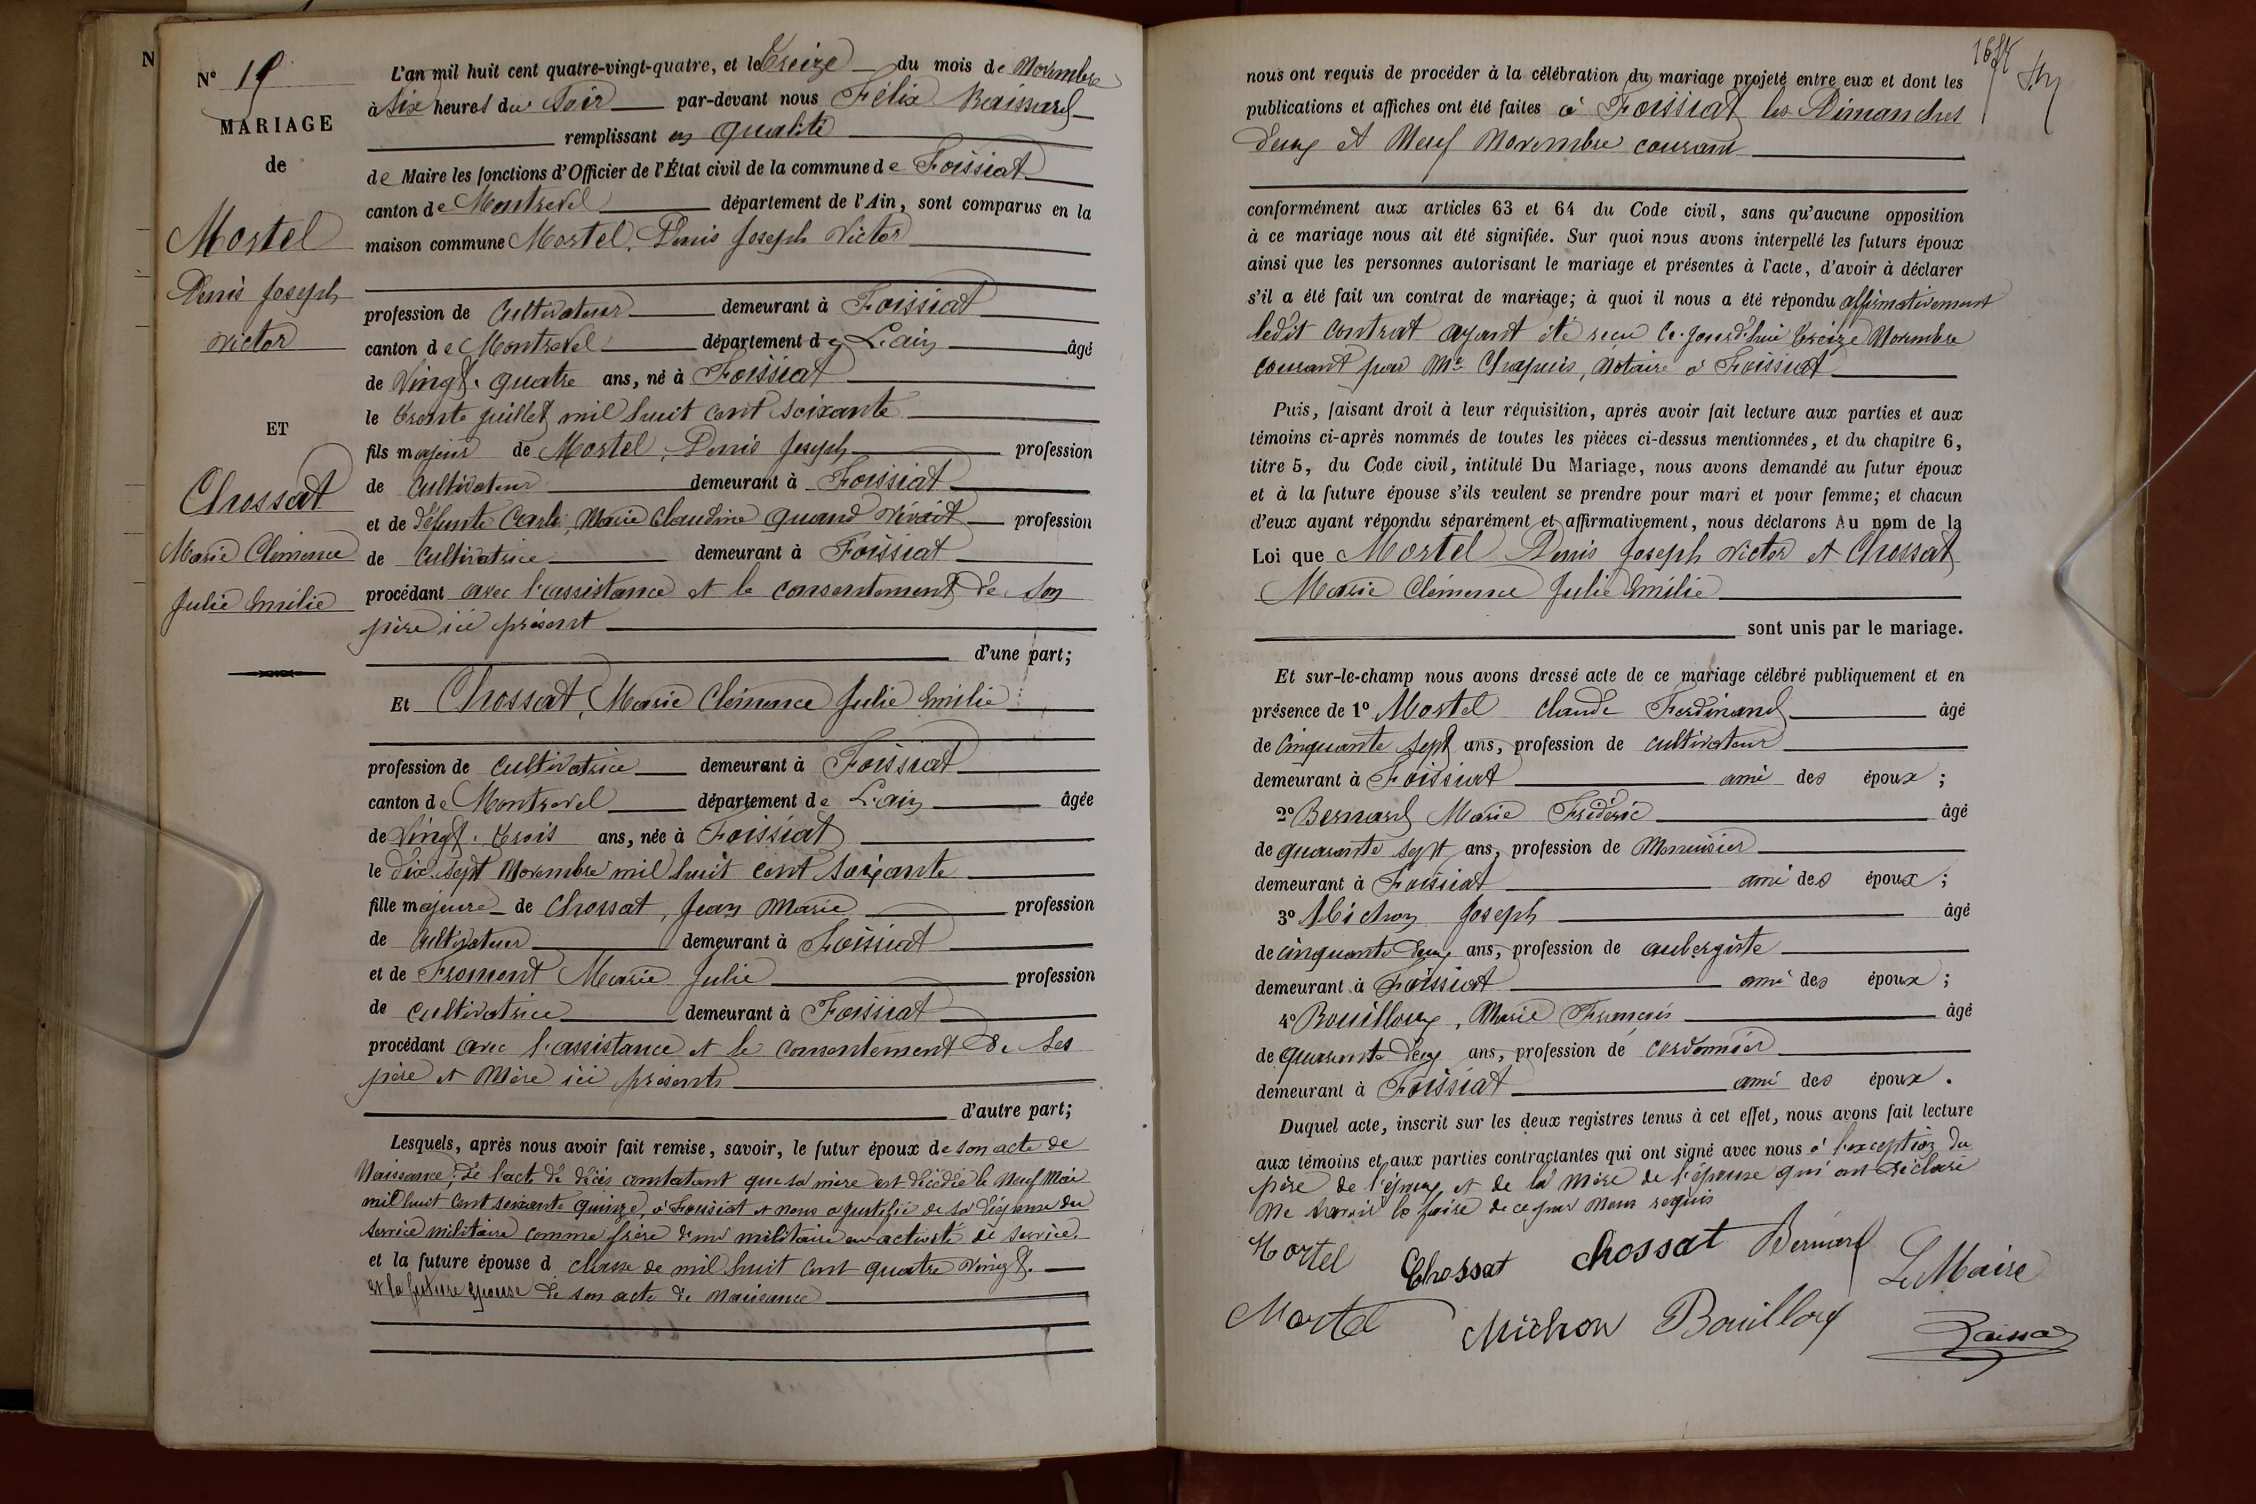 N
N° 19
MARIAGE
de
Mortel
Denis Joseph
Victor
ET
Chossat
Marie Clémence
Julie Emilie
L'an mil huit cent quatre-vingt-quatre, et le Treize du mois de Novembre
à Six heures du Soir par-devant nous Félix Raissard
remplissant en qualité
de Maire les fonctions d'Officier de l'État civil de la commune de Foissiat
canton de Montrevel département de l'Ain, sont comparus en la
maison commune Mortel, Denis Joseph Victor
profession de Cultivateur demeurant à Foissiat
canton de Montrevel département de L'ain âgé
de Vingt-quatre ans, né à Foissiat
le trente juillet mil huit cent soixante
fils majeur de Mortel, Denis Joseph profession
de Cultivateur demeurant à Foissiat
et de défunte Marie Claudine quand vivait profession
de cultivatrice demeurant à Foissiat
procédant avec l'assistance et le consentement de son
père ici présent
d'une part;
Et Chossat, Marie Clémence Julie Emilie
profession de Cultivatrice demeurant à Foissiat
canton de Montrevel département de L'ain âgée
de Vingt-trois ans, née à Foissiat
le dix-sept Novembre mil huit cent soixante
fille majeure de Chossat, Jean Marie profession
de Cultivateur demeurant à Foissiat
et de Froment Marie Julie profession
de cultivatrice demeurant à Foissiat
procédant avec l'assistance et le consentement de ses
père et Mère ici présents
d'autre part;
Lesquels, après nous avoir fait remise, savoir, le futur époux de son acte de
Naissance; de l'acte de décès constatant que sa mère est décédée le Neuf Mai
mil huit cent soixante quinze, à Foissiat et nous a justifié de sa dispense du
service militaire comme frère d'un militaire en activité de service.
et la future épouse d classe de mil huit cent quatre vingt.
et la future épouse de son acte de Naissance
nous ont requis de procéder à la célébration du mariage projeté entre eux et dont les
publications et affiches ont été faites à Foissiat les Dimanches
deux et Neuf Novembre courant
conformément aux articles 63 et 64 du Code civil, sans qu'aucune opposition
à ce mariage nous ait été signifiée. Sur quoi nous avons interpellé les futurs époux
ainsi que les personnes autorisant le mariage et présentes à l'acte, d'avoir à déclarer
s'il a été fait un contrat de mariage; à quoi il nous a été répondu affirmativement
ledit contrat ayant été recu ce-jourd'hui treize Novembre
courant par Me Chapuis, Notaire à Foissiat
Puis, faisant droit à leur réquisition, après avoir fait lecture aux parties et aux
témoins ci-après nommés de toutes les pièces ci-dessus mentionnées, et du chapitre 6,
titre 5, du Code civil, intitulé Du Mariage, nous avons demandé au futur époux
et à la future épouse s'ils veulent se prendre pour mari et pour femme; et chacun
d'eux ayant répondu séparément et affirmativement, nous déclarons Au nom de la
Loi que Mortel Denis Joseph Victor et Chossat
Marie Clémence Julie Emilie
sont unis par le mariage.
Et sur-le-champ nous avons dressé acte de ce mariage célébré publiquement et en
présence de 1° Mortel Claude Ferdinand âgé
de Cinquante sept ans, profession de cultivateur
demeurant à Foissiat ami des époux;
2° Bernard Marie Frédéric âgé
de quarante sept ans, profession de Menuisier
demeurant à Foissiat ami des époux;
3° Michon Joseph âgé
de cinquante deux ans, profession de aubergiste
demeurant à Foissiat ami des époux;
4° Bouilloux, Marie François âgé
de quarante deux ans, profession de cordonnier
demeurant à Foissiat ami des époux.
Duquel acte, inscrit sur les deux registres tenus à cet effet, nous avons fait lecture
aux témoins et aux parties contractantes qui ont signé avec nous à l'exception du
père de l'époux et de la Mère de l'épouse qui ont déclaré
ne savoir le faire de ce par nous requis
Mortel Chossat Chossat Bernard Le Maire
Mortel Michon Bouilloux Raissard